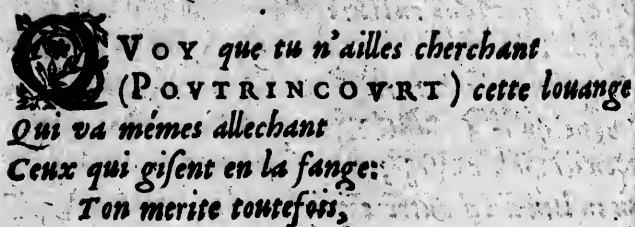 QVOY que tu n'ailles cherchant
(POVTRINCOVRT) cette louange
Qui va mémes allechant
Ceux qui giſent en la fange:
Ton merite toutefois,